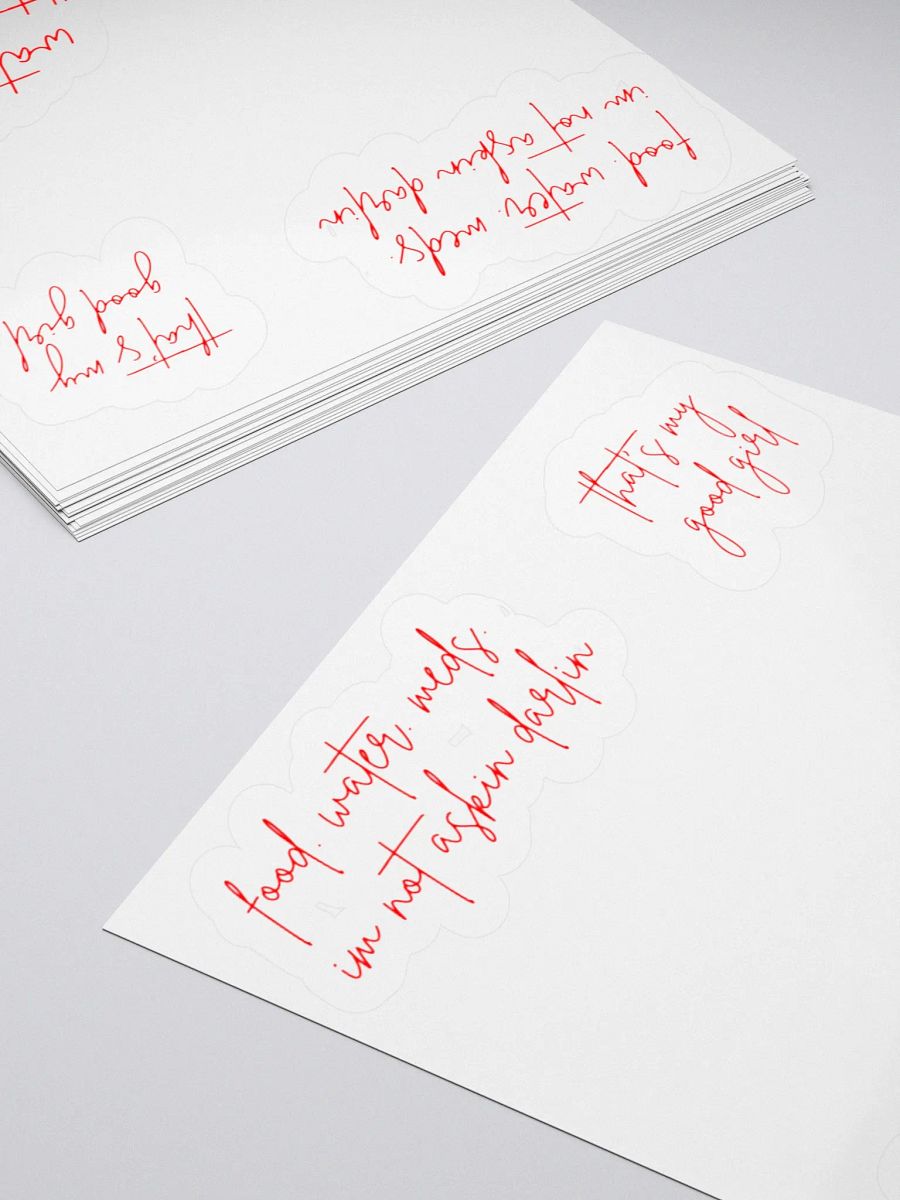 wat
im not askin darlin
food. water. meds.
good girl
that's my
that's my
good girl
food. water. meds.
im not askin darlin